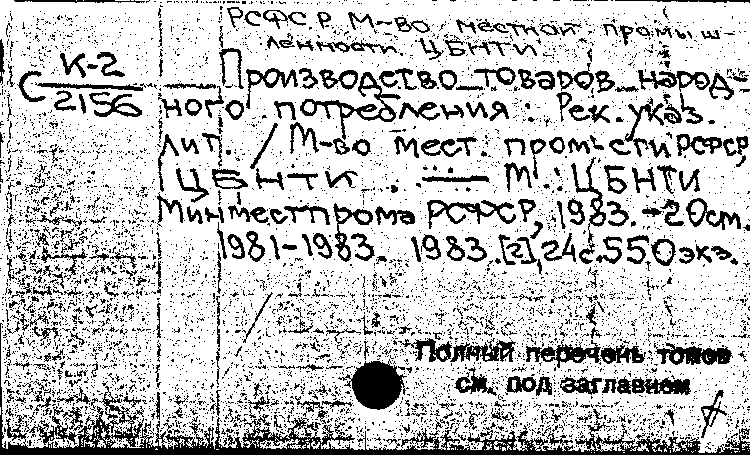 РСФСР М-во местной промыш-
ленности. ЦБНТИ
К-2
С 2156
Производство товаров народ-
ного потребления: Рек. указ.
лит. / М-во мест. пром-сти РСФСР,
ЦБНТИ. — М.: ЦБНТИ
Минместпрома РСФСР, 1983. - 20см.
1981-1983. 1983. [2], 24с. 550экз.
Полный перечень томов
см. под заглавием